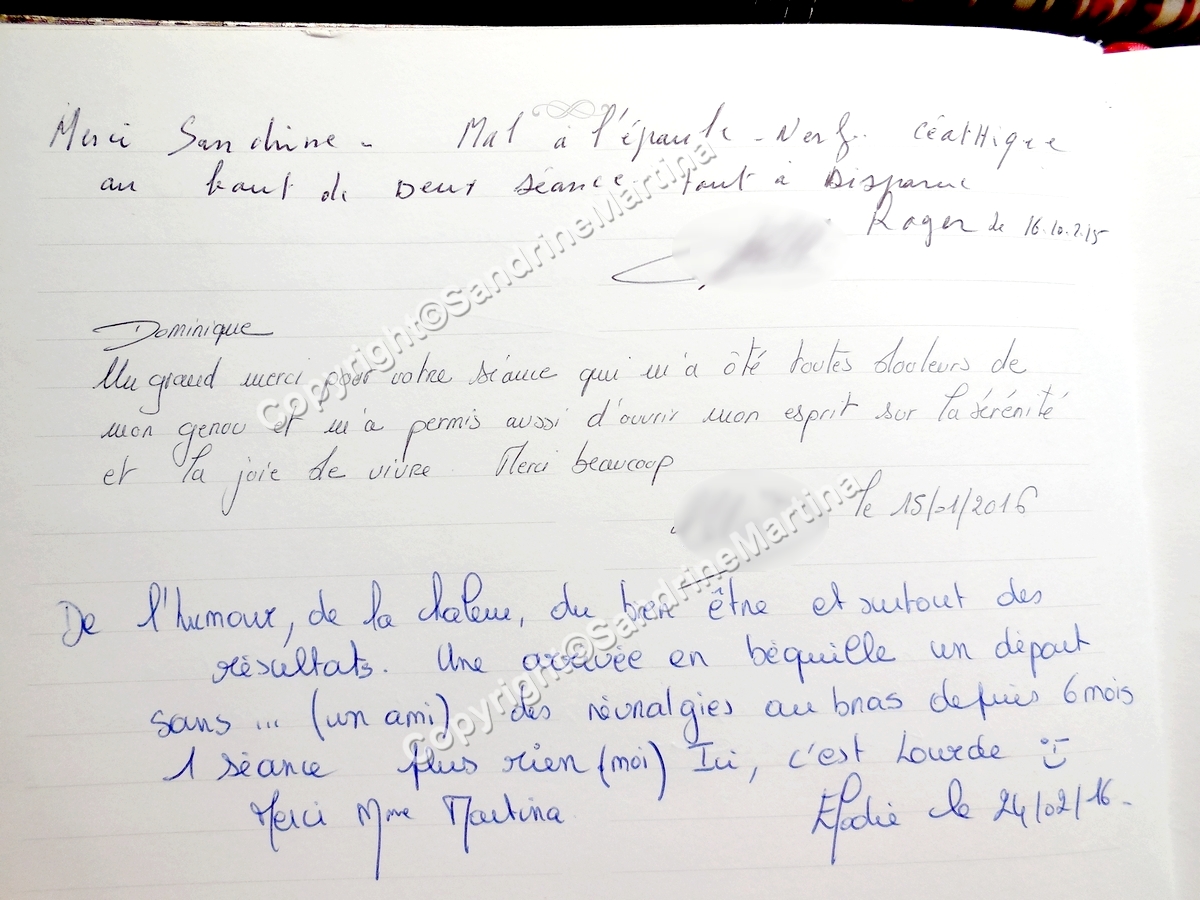 Merci Sandrine - Mal à l'épaule - Nerf. céatHique
au bout de Deux séance tout à Disparue
Roger le 16.10.2.15
Dominique
Un grand merci pour votre séance qui m'a ôté toutes douleurs de
mon genou et m'a permis aussi d'ouvrir mon esprit sur la sérénité
et la joie de vivre. Merci beaucoup
le 15/01/2016
De l'humour, de la chaleur, du bien être et surtout des
résultats. Une arrivée en béquille un départ
sans ... (un ami) des névralgies au bras depuis 6 mois
1 séance plus rien (moi) Ici, c'est Lourde :)
Merci Mme Martina
Elodie le 24/02/16.
Copyright©SandrineMartina
Copyright©SandrineMartina